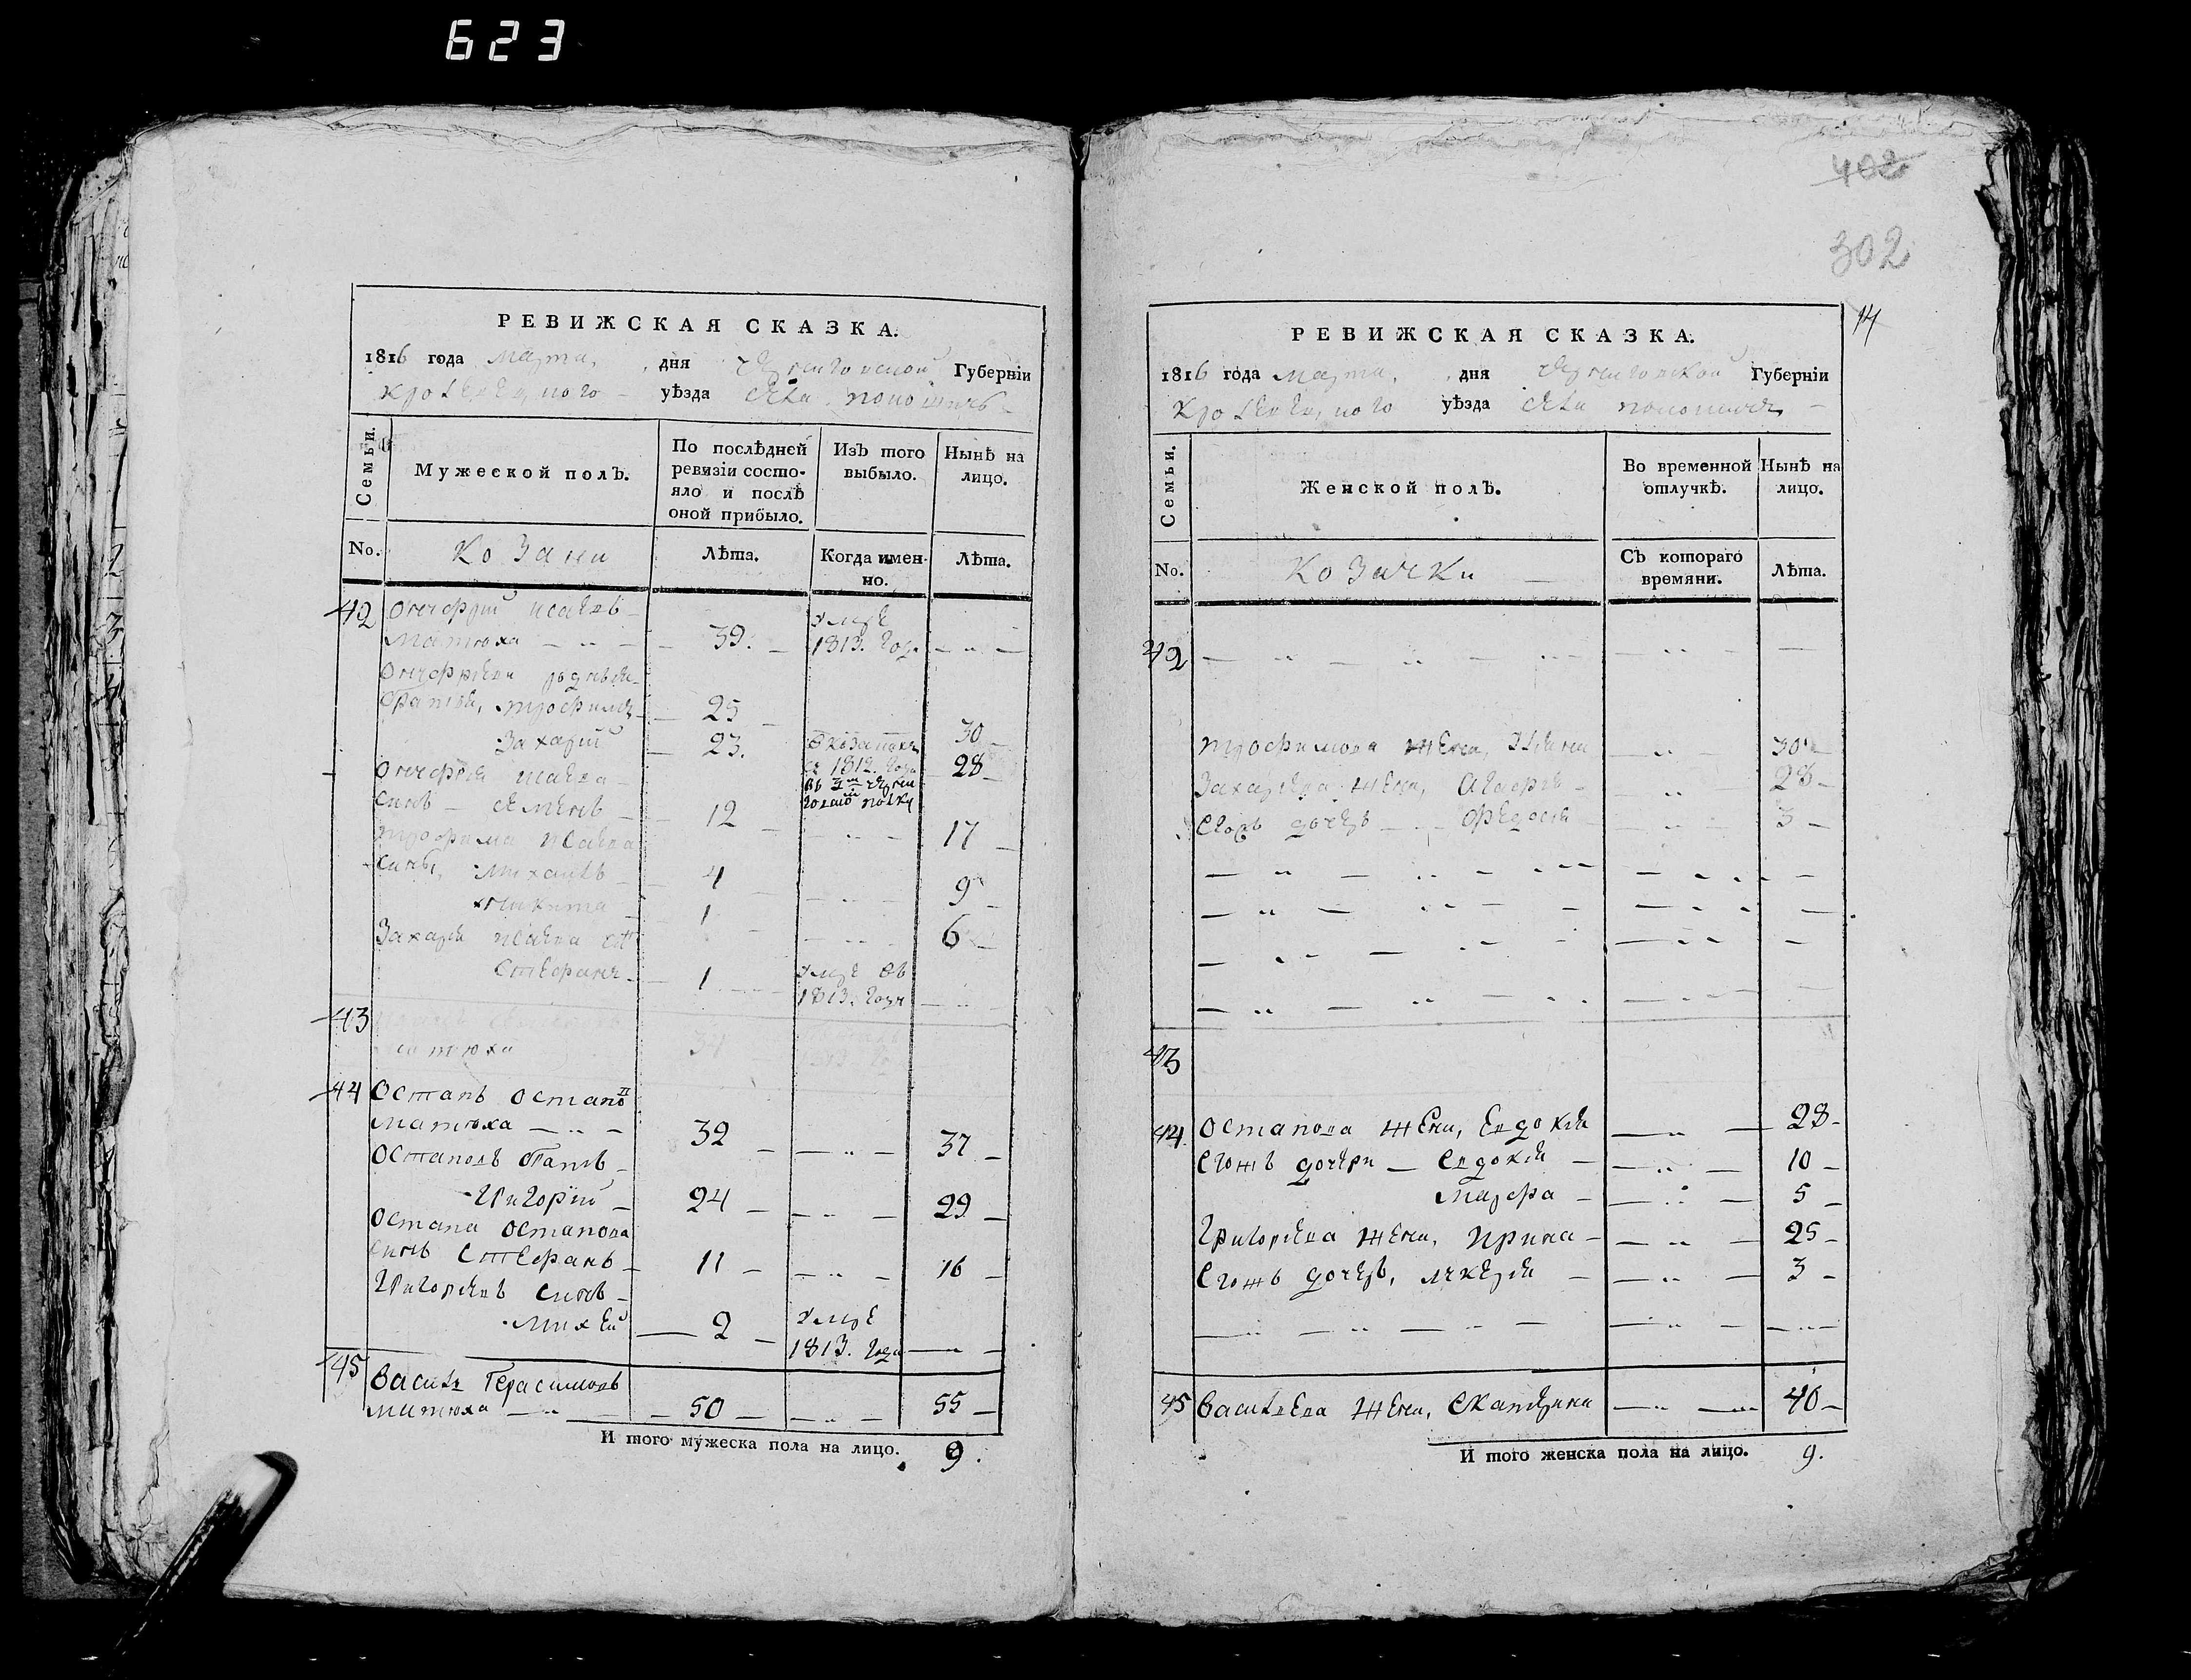 623
402
302
14
РЕВИЖСКАЯ СКАЗКА.
1816 года марта, дня Черниговской Губерніи
Кролевецкого уѣзда села
Семьи.
Мужеской полъ.
По послѣдней
ревизіи состо-
яло и послѣ
оной прибыло.
Изъ того
выбыло.
Нынѣ на
лицо.
No.
Козаки
Лѣта.
Когда имен-
но.
Лѣта.
42 Ончофрій Исаевъ
Матюха 39. умре 1813. года
Ончофріеви родные
братья, Трофимъ 25 30
Захарій 23. 28
в козацкомъ
1812. года
въ 3м Черни
полку
Ончофрія Исаева
синъ Семенъ 12 17
Трофима Исаева
сины, Михаилъ 4 9
Никита 1 6
Захарія Исаева
Стефанъ 1 умре въ 1813. году
43
Матюха
44 Остапъ Остапо
Матюха 32 37
Остаповъ братъ
Григорій 24 29
Остапа Остапова
синъ Стефанъ 11 16
Григоріевъ синъ
Михей 2 умре 1813. года
45 Василь Герасимовъ
Матюха 50 55
И того мужеска пола на лицо. 9.
РЕВИЖСКАЯ СКАЗКА.
1816 года марта, дня Черниговской Губерніи
Кролевецкого уѣзда села
Семьи.
Женской полъ.
Во временной
отлучкѣ.
Нынѣ на
лицо.
No.
Козачки
Съ котораго
времяни.
Лѣта.
42
Трофимова жена, 30
Захарiева жена, Агафія 28
Егожъ дочерь Федосія 3
43
44 Остапова жена, Евдокія 28
Егожъ дочери Евдокія 10
Марфа 5
Григоріева жена, Ирина 25
Егожъ дочерь, Лукерія 3
45 Васильева жена, Екатерина 40
И того женска пола на лицо. 9.